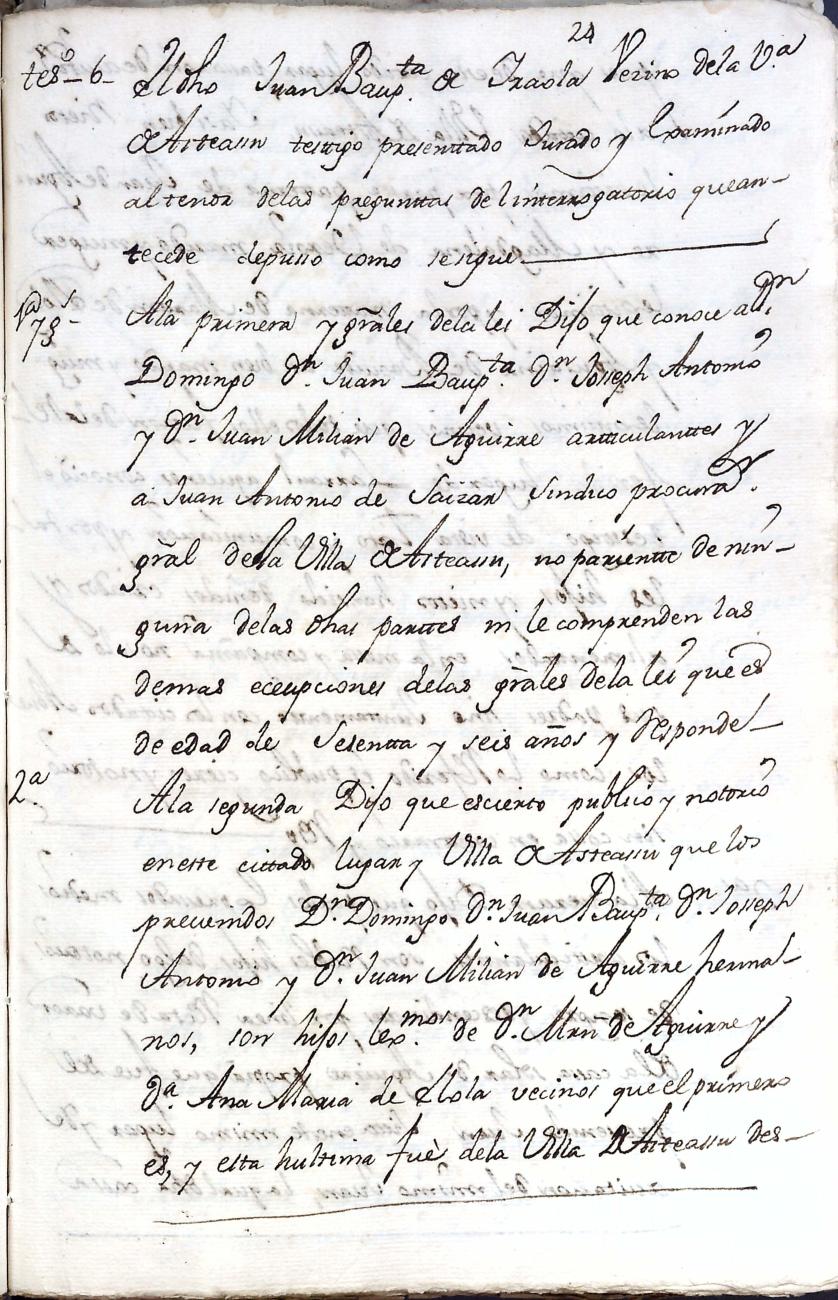 24
tesº 6 El dho Juan Baup.ta de Iraola Vezino dela V.a
de Asteassu testigo presenttado Jurado y Examinado
al tenor delas pregunttas del interrogatorio que an-
tecede depusso como se sigue
1.a y gs Ala primera y grales dela lei Dijo que conoce a Dn
Domingo dn. Juan Baup.ta dn. Joseph Antonio
y dn. Juan Milian de Aguirre articulanttes y
a Juan Antonio de Saizar Sindico procura.or
gral dela Villa de Asteassu, no parientte de nin-
guna delas dhas parttes ni le comprenden las
demas eceupciones delas grales dela lei que es
de edad de Sesentta y seis años y responde
2.a Ala segunda Dijo que es cierto publico y notorio
en este cittado lugar y Villa de Asteassu que los
prevenidos Dn. Domingo, dn. Juan Baup.ta dn. Joseph
Antonio y dn. Juan Milian de Aguirre herma-
nos, son hijos lex.mos de dn. Mrn de Aguirre y
da. Ana Maria de Elola vecinos que el primero
es, y esta hultima fuè dela Villa de Asteassu des-